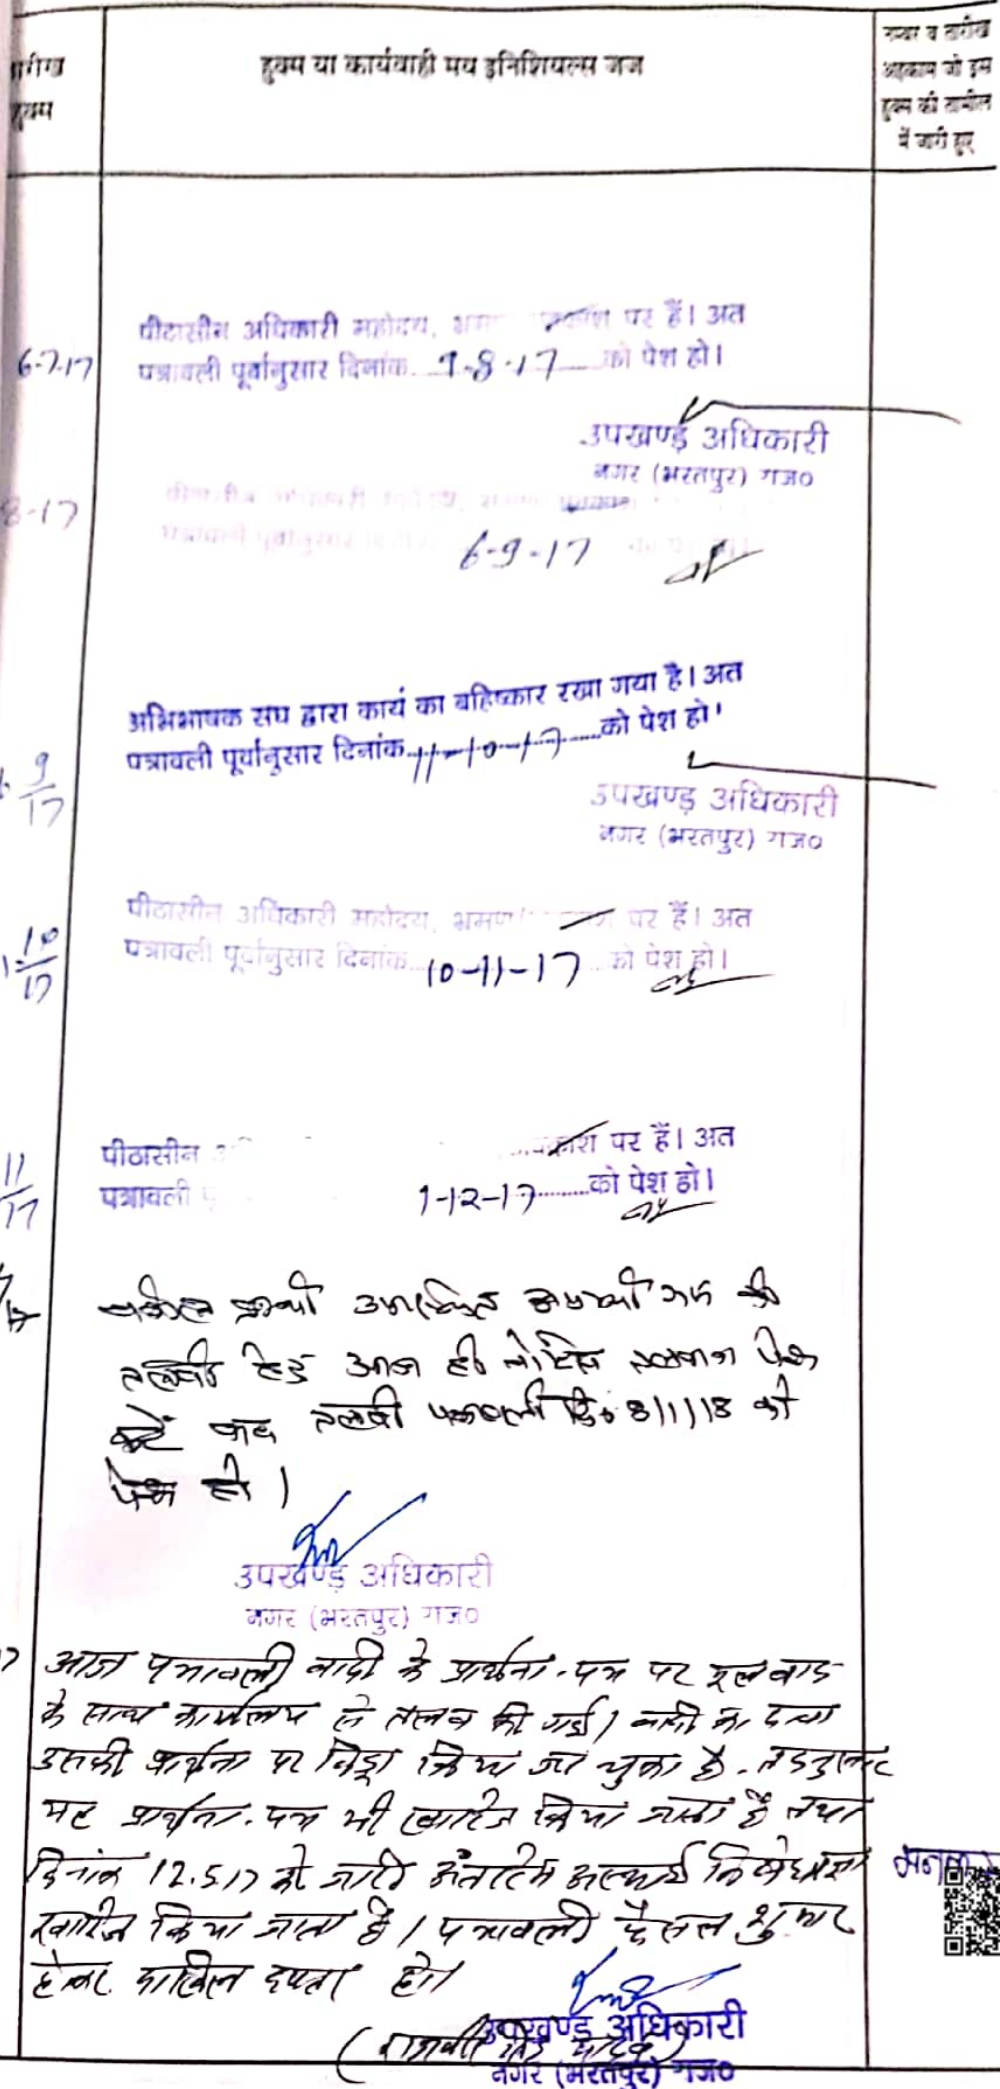 तारीख
हुक्म
हुक्म या कार्यवाही मय इनिशियल्स जज
नम्बर व तारीख
अहकाम जो इस
हुक्म की तामील
में जारी हुए
6-7-17
पीठासीन अधिकारी महोदय, पर हैं। अत
पत्रावली पूर्वानुसार दिनांक 9-8-17 को पेश हो।
उपखण्ड अधिकारी
नगर (भरतपुर) राज०
8-17
6-9-17
9/17
अभिभाषक संघ द्वारा कार्य का बहिष्कार रखा गया है। अत
पत्रावली पूर्वानुसार दिनांक 11-10-17 को पेश हो
उपखण्ड अधिकारी
नगर (भरतपुर) राज०
10/17
पीठासीन अधिकारी महोदय, भ्रमण पर हैं। अत
पत्रावली पूर्वानुसार दिनांक 10-11-17 को पेश हो।
11/17
पीठासीन पर हैं। अत
पत्रावली 1-12-17 को पेश हो।
वकील प्रार्थी उपस्थित की
तलबी हेतु आज ही नोटिस तलवाना पेश
करें बाद तलबी पत्रावली दि० 8/1/18 को
पेश हो।
उपखण्ड अधिकारी
नगर (भरतपुर) राज०
आज पत्रावली वादी के प्रार्थना-पत्र पर मूलवाद
के साथ कार्यालय से तलब की गई। वादी का दावा
उसकी प्रार्थना पर विड्रा किया जा चुका है. तदनुसार
यह प्रार्थना-पत्र भी खारिज किया जाता है तथा
दिनांक 12.5.17 को जारी अंतरिम अस्थाई निषेधाज्ञा
खारिज किया जाता है। पत्रावली फैसल शुमार
होकर दाखिल दफ्तर हो।
उपखण्ड अधिकारी
नगर (भरतपुर) राज०